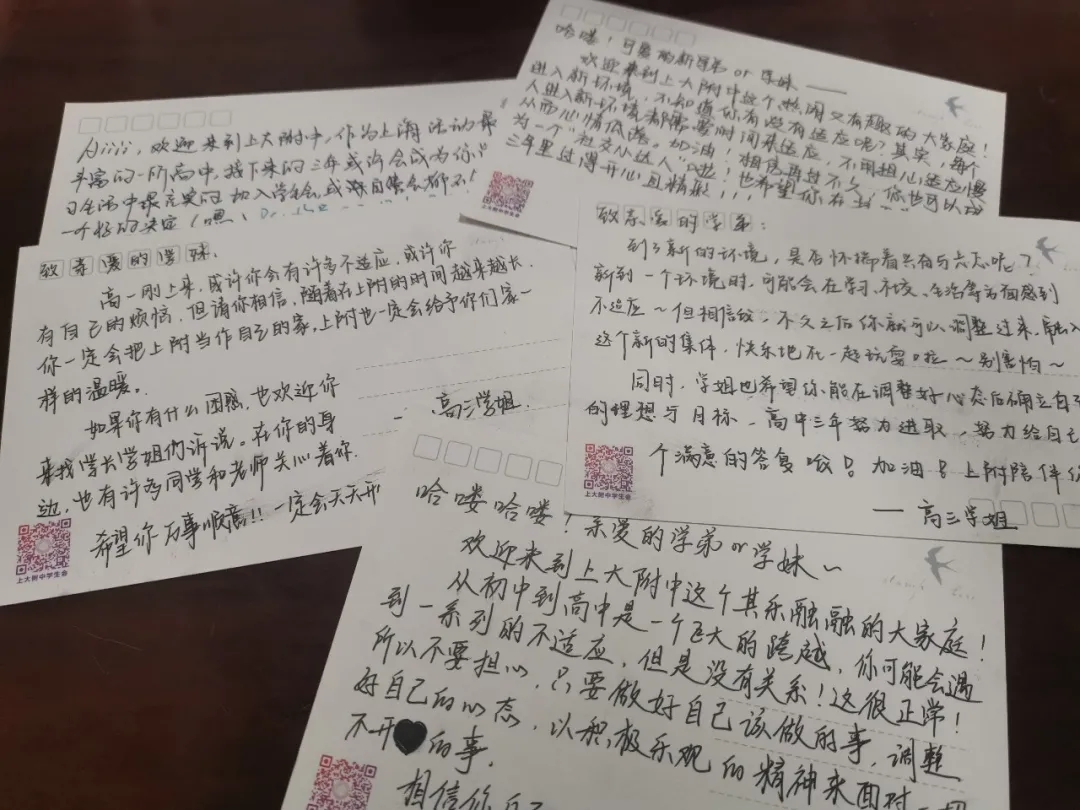 Aiiii,欢迎来到上大附中,作为上海活动最
丰富的一所高中,接下来的三年或许会成为你
习生活中最充实的 加入学生会或
一个好的决定(嗯!
哈喽!可爱的新学弟or学妹——
欢迎来到上大附中这个热闹又有趣的大家庭!
进入新环境,不知道你有没有适应呢?其实,每个
人进入新环境都需要时间来适应,不用担心适应慢
从而心情低落。加油!相信再过不久,你也可以成
为一个“社交小达人”啦!也希望你在
三年里过得开心且精彩!!!
上大附中学生会
致亲爱的学妹:
高一刚上来,或许你会有许多不适应,或许你
有自己的烦恼,但请你相信,随着在上附的时间越来越长,
你一定会把上附当作自己的家,上附也一定会给予你们家一
样的温暖。
如果你有什么困惑,也欢迎你
来找学长学姐们诉说。在你的身
边,也有许多同学和老师关心着你.
希望你万事顺意!!一定会天天开
—高三学姐.
上大附中学生会
致亲爱的学弟:
到了新的环境,是否怀揣着兴奋与忐忑呢?
新到一个环境时,可能会在学习、社交、生活等方面感到
不适应~但相信我,不久之后你就可以调整过来,融入
这个新的集体,快乐地在一起玩耍啦~别害怕~
同时,学姐也希望你能在调整好心态后确立自己
的理想与目标,高中三年努力进取,努力给自己
个满意的答复哦!加油!上附陪伴
—高三学姐
上大附中学生会
哈喽哈喽!亲爱的学弟or学妹~
欢迎来到上大附中这个其乐融融的大家庭!
从初中到高中是一个巨大的跨越,你可能会遇
到一系列的不适应,但是没有关系!这很正常!
所以不要担心,只要做好自己该做的事,调整
好自己的心态,以积极乐观的精神来面对一切
不开♥的事.
相信你自己